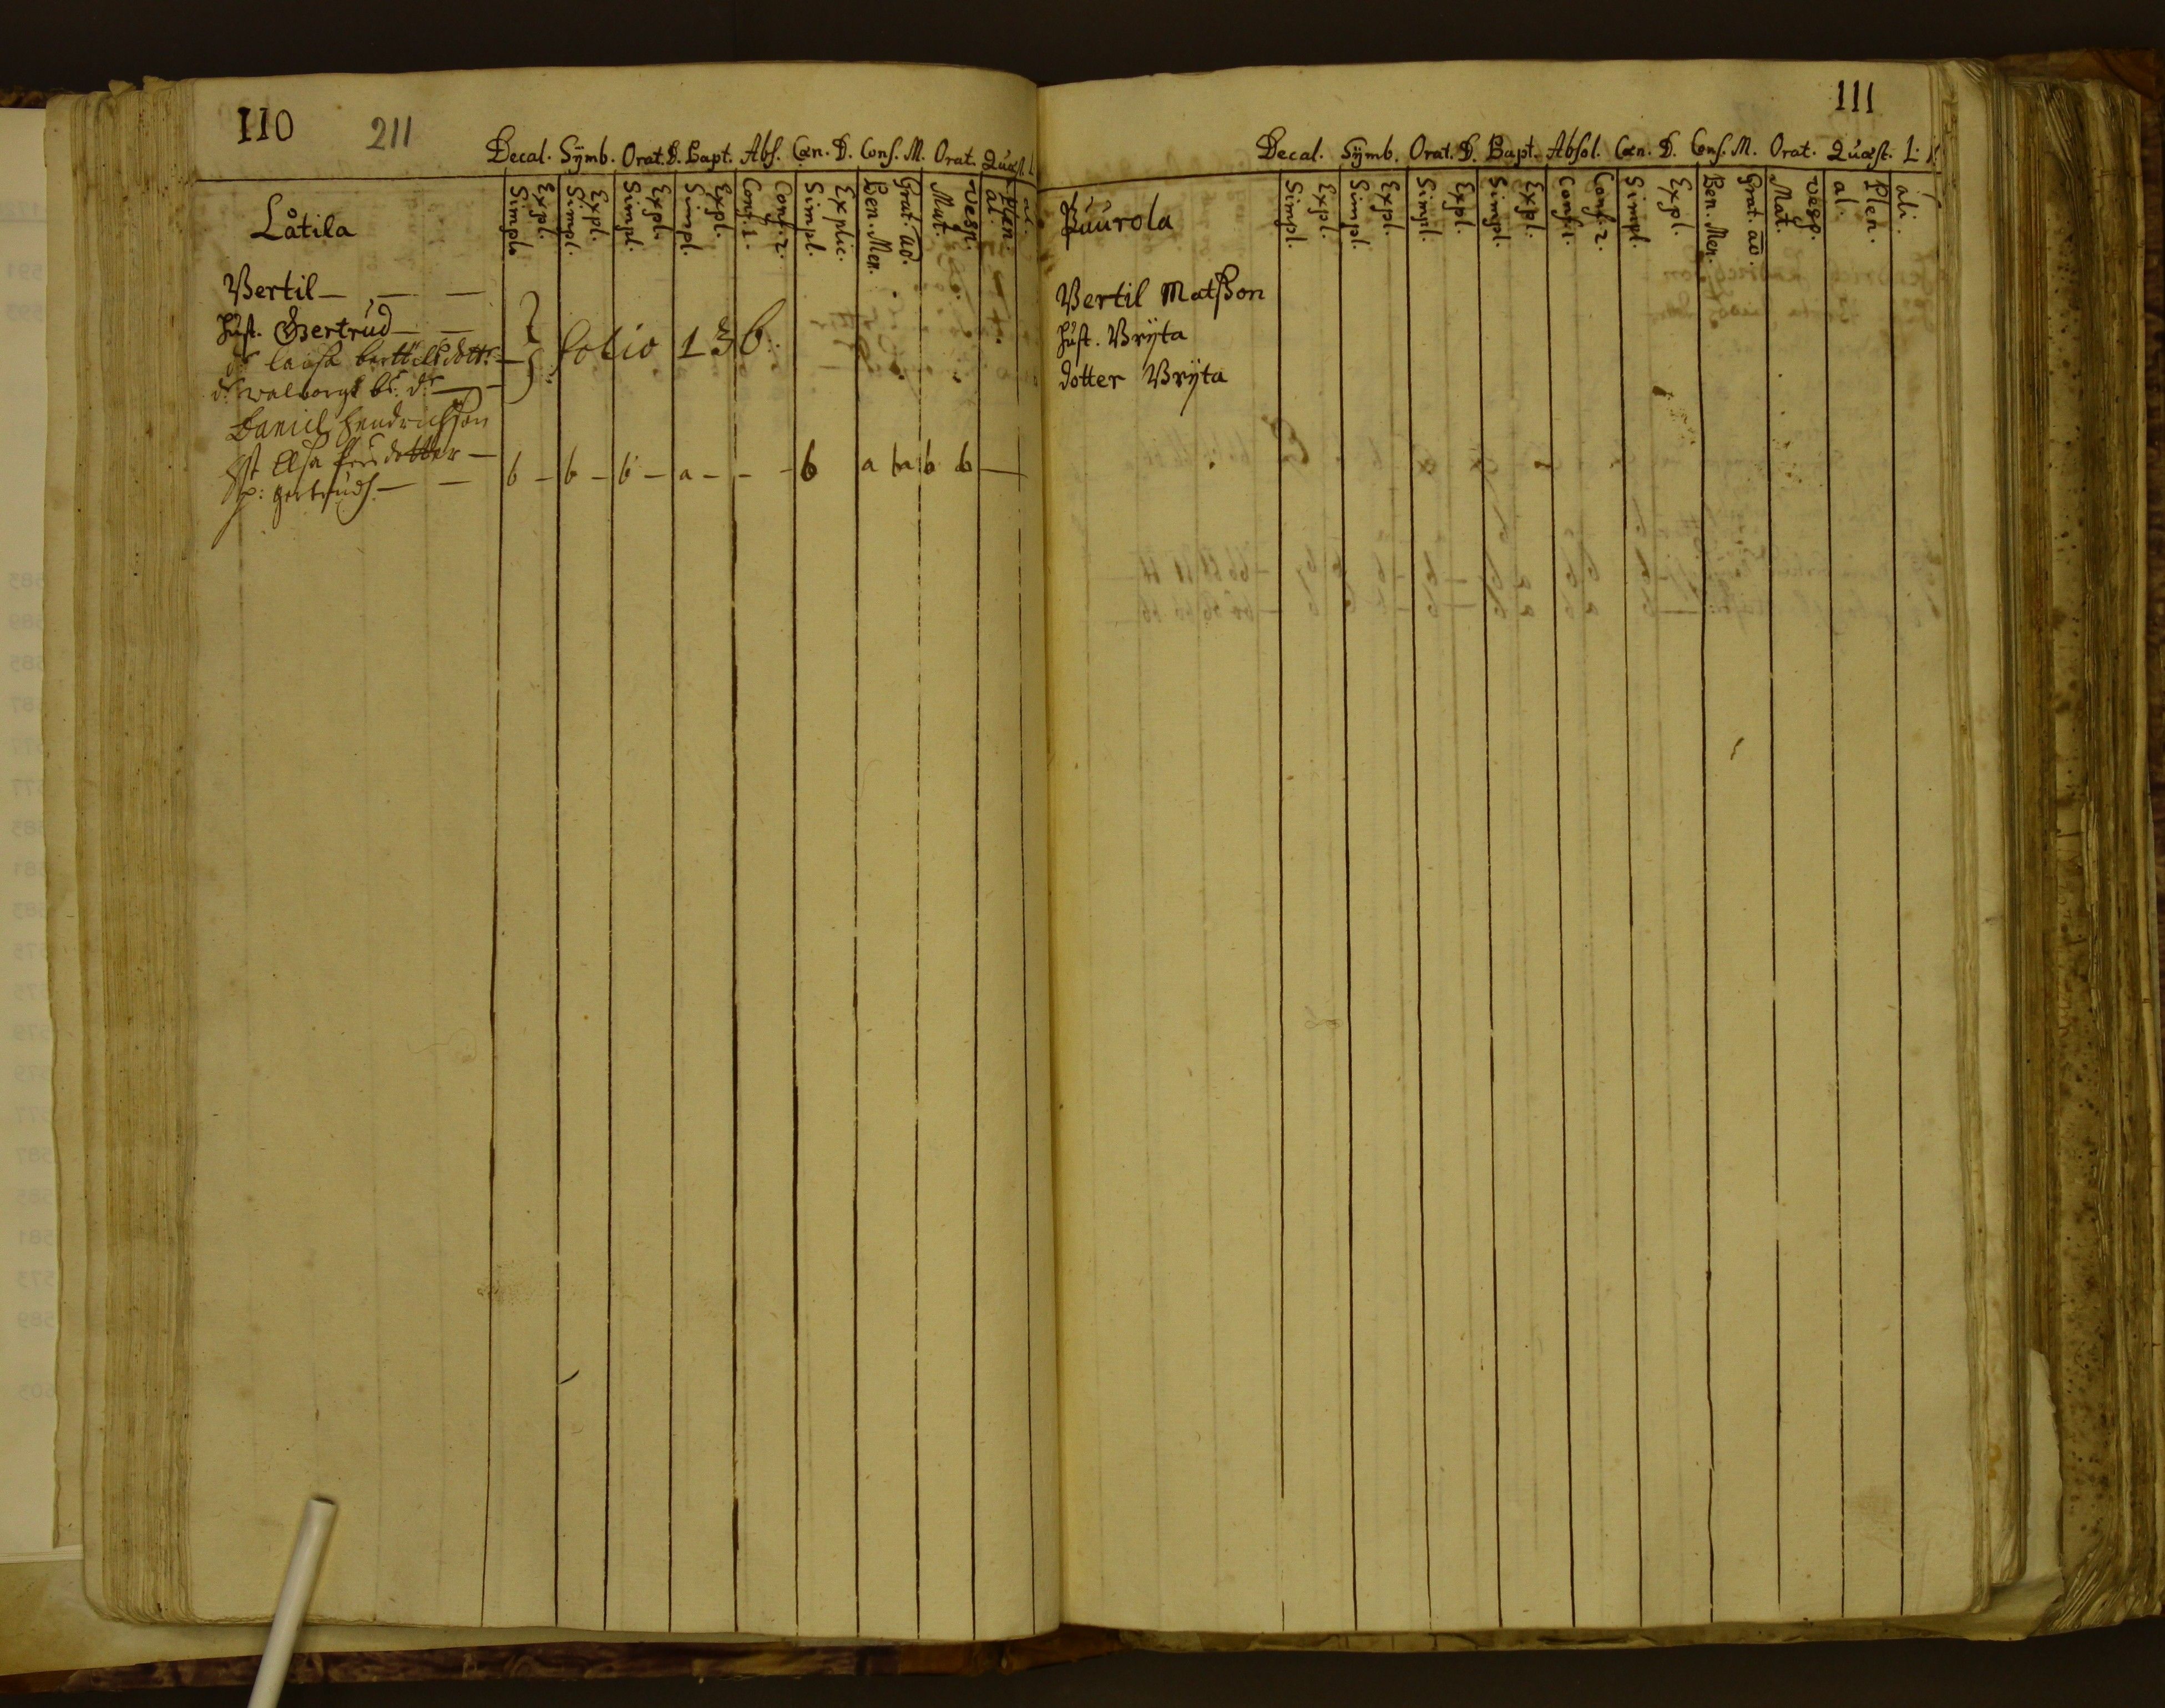 110 211
Decal. Sÿmb. Orat. D. Bapt. Abs. Cœn. D. Cons. M. Orat. Quæst. L
Simpl. Expl. Simpl. Expl. Simpl. Expl. Simpl. Expl. Conf. 1. Conf. 2. Simpl. Explic. Ben. Men. Grat. ac. Mat. Vesp. al. Plen. al.
Låtila
Bertil — — —
Hust. Gertrud — —
folio 136.
dr walborgh br. dr —
Daniel Hendrichsson
Elsa
b — b — b — a — — — b a a b b —
111
Decal. Sÿmb. Orat. D. Bapt. Absol. Cœn. D. Cons. M. Orat. Quæst. L:
Simpl. Expl. Simpl. Expl. Simpl. Expl. Simpl. Expl. Conf. 1. Conf. 2. Simpl. Expl. Ben. Men. Grat. ac. Mat. Vesp. al. Plen. ali.
Puurola
Bertil Matsson
Hust. Brÿta
dotter Brÿta